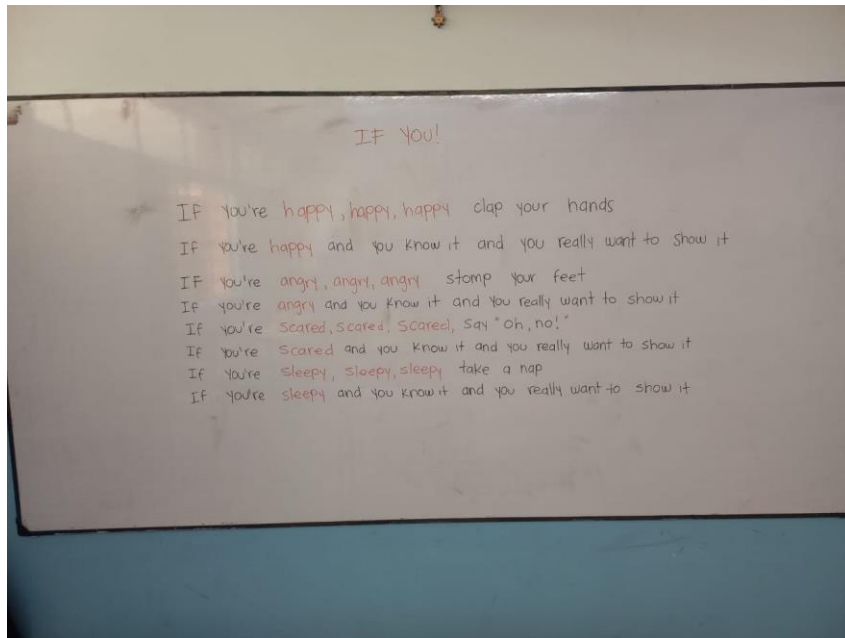 IF YOU!
IF you're happy, happy, happy clap your hands
If you're happy and you know it and you really want to show it
IF you're angry, angry, angry stomp your feet
If you're angry and you know it and you really want to show it
If you're scared, scared, scared, say "oh, no!"
If you're scared and you know it and you really want to show it
If you're sleepy, sleepy, sleepy take a nap
If you're sleepy and you know it and you really want to show it